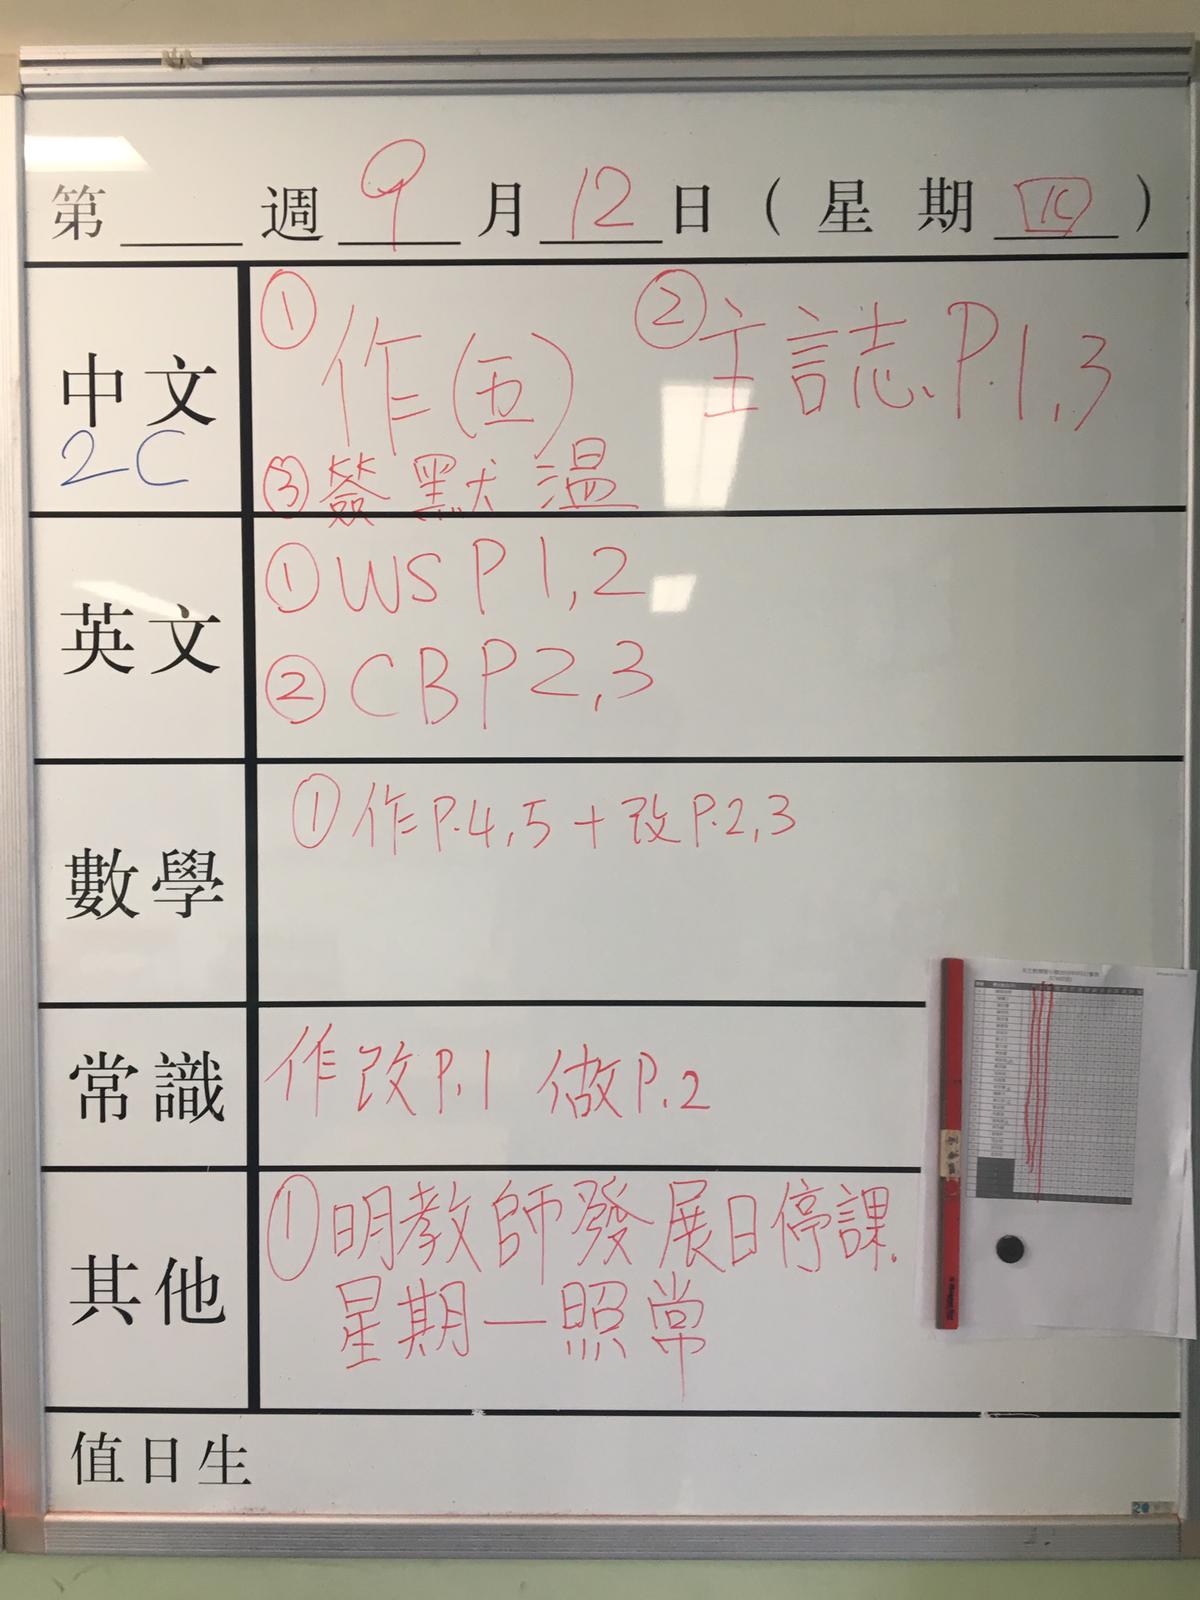 第 週 9 月 12 日 ( 星 期 四 )
中文
2C
① 作(五) ② 主誌、P.1,3
③ 簽默溫
英文
① WS P 1,2
② CB P 2,3
數學
① 作P.4,5 + 改P.2,3
常識
作改P.1 做P.2
其他
① 明教師發展日停課.
星期一照常
值日生